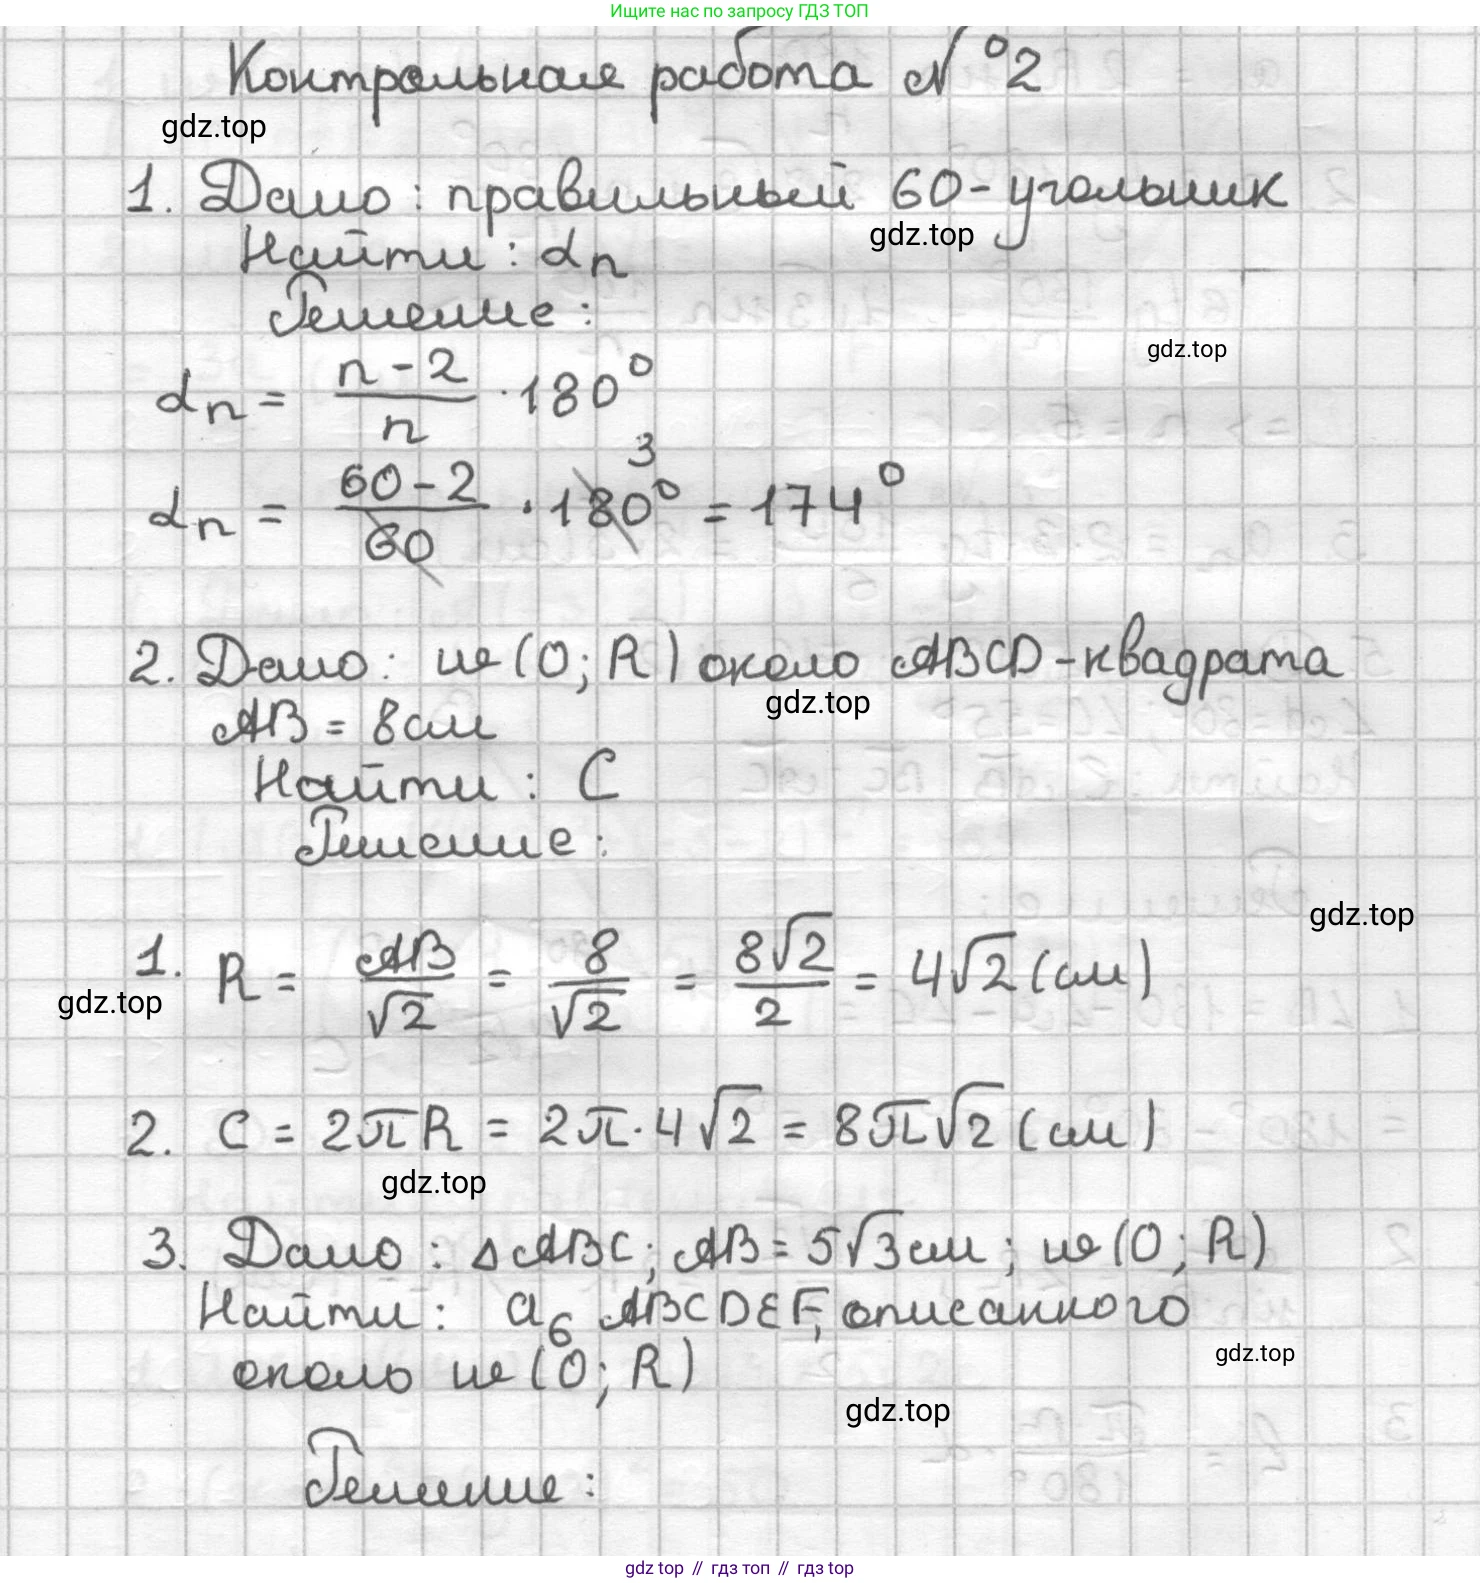 Ищите нас по запросу ГДЗ ТОП
Контрольная работа №2
gdz.top
1. Дано: правильный 60-угольник
gdz.top
Найти: αn
Решение:
gdz.top
αn = (n-2)/n · 180°
3
αn = (60-2)/60 · 180° = 174°
2. Дано: w (O; R) около ABCD-квадрата
gdz.top
AB = 8 см
Найти: C
Решение:
gdz.top
1. R = AB/√2 = 8/√2 = 8√2/2 = 4√2 (см)
gdz.top
2. C = 2πR = 2π·4√2 = 8π√2 (см)
gdz.top
3. Дано: ΔABC; AB = 5√3 см; w (O; R)
Найти: a6 ABCDEF, описанного
gdz.top
около w (O; R)
gdz.top
Решение:
gdz top // гдз топ // гдз top